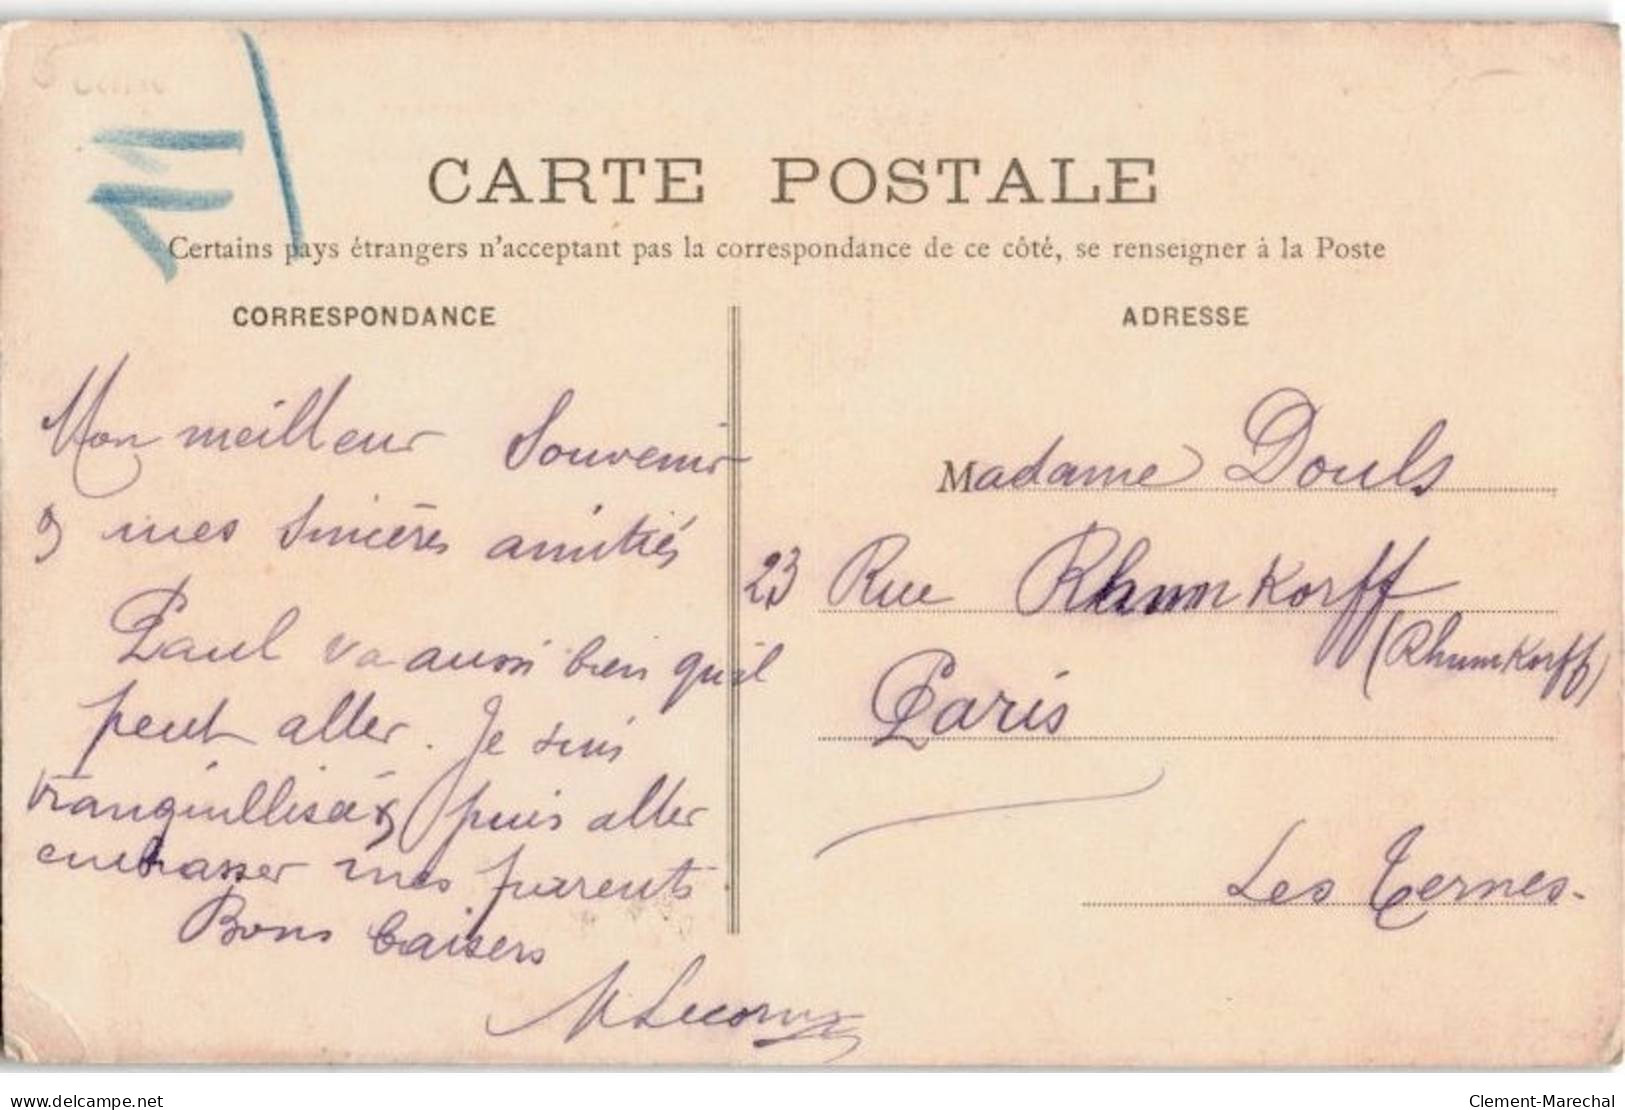 CARTE POSTALE
Certains pays étrangers n'acceptant pas la correspondance de ce côté, se renseigner à la Poste
CORRESPONDANCE
Mon meilleur Souvenir
& mes sincères amitiés
Paul va aussi bien qu'il
peut aller. Je suis
tranquillisée & puis aller
embrasser mes parents
Bons baisers
M Lecornu
ADRESSE
Madame Douls
23 Rue Rhumkorff
(Rhumkorff)
Paris
Les Ternes.
delcampe.net
Clement-Marechal